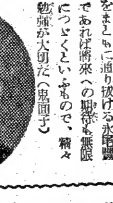 をまともに通り抜ける永田龍
であれば將來への期待も無限
につゞくといふもので、精々
勉強が大切だ（鬼面子）